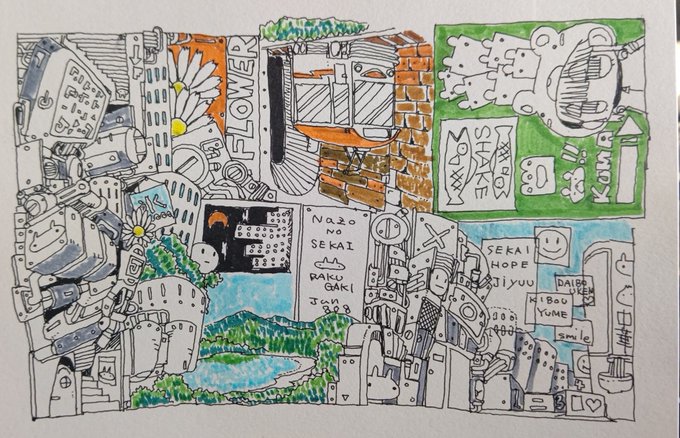 FLOWER
SHAKE
KUMA
!!
Nazo
no
SEKAI
RAKU
GAKI
Jan
SEKAI
HOPE
JiYUU
DAIBO
UKEN
KIBOU
YUME
smile